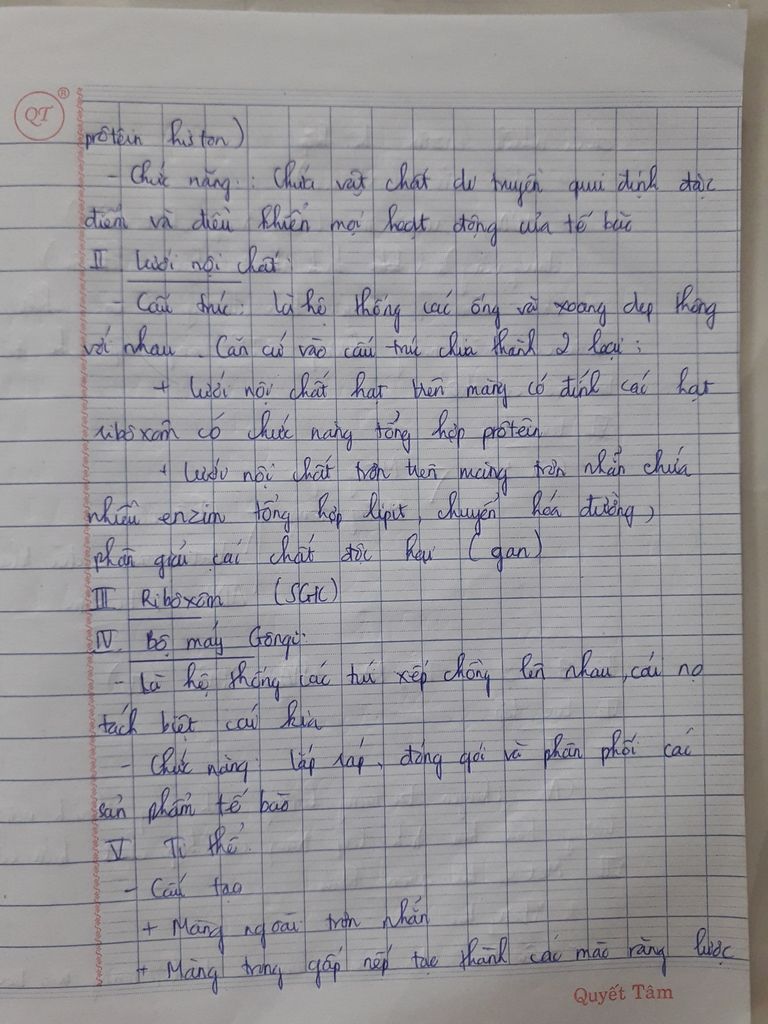 QT ®
prôtêin histon)
- Chức năng: Chứa vật chất di truyền qui định đặc
điểm và điều khiển mọi hoạt động của tế bào
II Lưới nội chất:
- Cấu trúc: Là hệ thống các ống và xoang dẹp thông
với nhau. Căn cứ vào cấu trúc chia thành 2 loại:
+ Lưới nội chất hạt trên màng có đính các hạt
ribôxôm có chức năng tổng hợp prôtêin
+ Lưới nội chất trơn trên màng trơn nhẵn chứa
nhiều enzim tổng hợp lipit, chuyển hóa đường,
phân giải các chất độc hại (gan)
III Ribôxôm (SGK)
IV Bộ máy Gôngi:
- Là hệ thống các túi xếp chồng lên nhau, cái nọ
tách biệt cái kia
- Chức năng: lắp ráp, đóng gói và phân phối các
sản phẩm tế bào
V Ti thể:
- Cấu tạo
+ Màng ngoài trơn nhẵn
+ Màng trong gấp nếp tạo thành các mào răng lược
Quyết Tâm